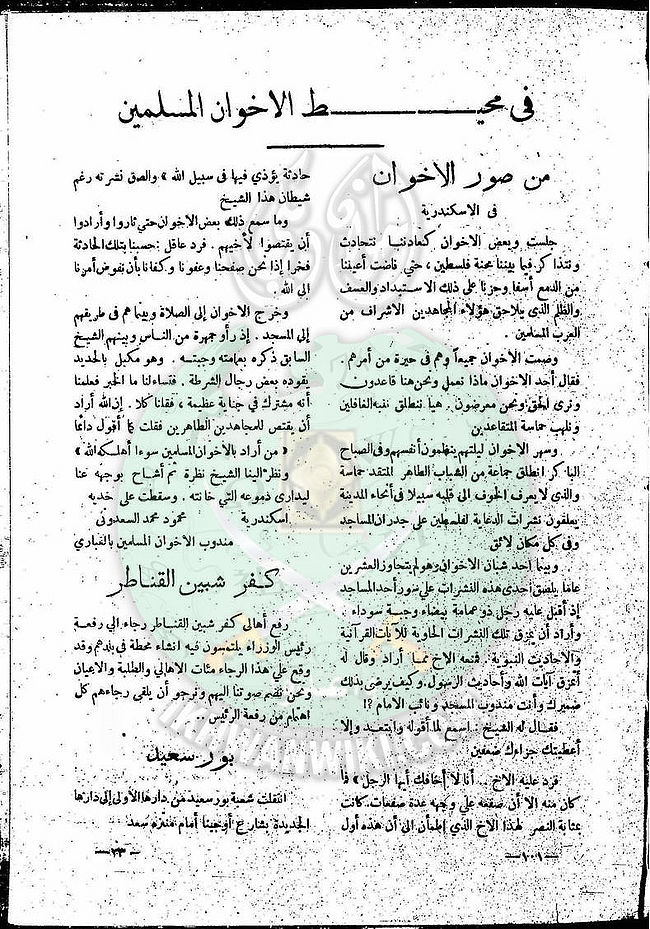 فى محيط الاخوان المسلمين
من صور الاخوان
فى الاسكندرية
جلست وبعض الاخوان كعادتنا نتحادث
ونتذاكر فيما بيننا محنة فلسطين ، حتي فاضت أعيننا
من الدمع أسفا وحزنا على ذلك الاستبداد والعسف
والظلم الذى يلاحق هؤلاء المجاهدين الاشراف من
العرب المسلمين
وصمت الأخوان جميعاً وهم فى حيرة من أمرهم .
فقال أحد الاخوان ماذا نعمل ونحن هنا قاعدون
ونرى الحق ونحن معرضون . هيا ننطلق ننبه الغافلين
ونلهب حماسة المتقاعدين
وسهر الاخوان ليلتهم ينظمون أنفسهم وفى الصباح
الباكر انطلق جماعة من الشباب الطاهر المتقد حماسة
والذى لا يعرف الخوف الى قلبه سبيلا فى أنحاء المدينة
يعلقون نشرات الدعاية لفلسطين على جدران المساجد
وفى كل مكان لائق
وبينما احد شبان الاخوان وهو لم يتجاوز العشرين
عاما يلصق احدى هذه النشرات علي سور أحد المساجد
إذ أقبل عليه رجل ذو عمامة بيضاء وجبة سوداء .
وأراد أن يمزق تلك النشرات الحاوية للآيات القرآنية
والاحاديث النبوية . فمنعه الاخ مما أراد وقال له
أتمزق آيات الله وأحاديث الرسول وكيف يرضى بذلك
ضميرك وأنت مندوب المسجد ونائب الامام ؟!
فقال له الشيخ : اسمع لما أقوله وابتعد وإلا
أعطيتك جزاءك ضعفين
فرد عليه الاخ .. أنا لا أخافك أيها الرجل » فما
كان منه إلا أن صفعه علي وجهه عدة صفعات كانت
بمثابة النصر لهذا الاخ الذي اطمأن الى أن هذه أول
حادثة يؤذي فيها فى سبيل الله » والصق نشرته رغم
شيطان هذا الشيخ
وما سمع ذلك بعض الاخوان حتي ثاروا وأرادوا
أن يقتصوا لأخيهم . فرد عاقل : حسبنا بتلك الحادثة
فخرا إذا نحن صفحنا وعفونا وكفانا بأن نفوض أمرنا
الى الله .
وخرج الاخوان إلى الصلاة وبينما هم فى طريقهم
إلى المسجد . إذ رأو جمهرة من الناس وبينهم الشيخ
السابق ذكره بعمامته وجبته . وهو مكبل بالحديد
يقوده بعض رجال الشرطة . فتساءلنا ما الخبر فعلمنا
أنه مشترك في جناية عظيمة ، فقلنا كلا . إن الله أراد
أن يقتص للمجاهدين الطاهرين فقلت كما أقول دائما
« من أراد بالاخوان المسلمين سوءا أهلكه الله »
ونظر الينا الشيخ نظرة ثم أشاح بوجهه عنا
ليدارى دموعه التي خانته . وسقطت على خديه
اسكندرية محمود محمد السعدونى
مندوب الاخوان المسلمين بالقبارى
كفر شبين القناطر
رفع أهالى كفر شبين القناطر رجاء الي رفعة
رئيس الوزراء يلتمسون فيه انشاء محطة فى بلدهم وقد
وقع علي هذا الرجاء مئات الاهالي والطلبة والاعيان
ونحن نضم صوتنا اليهم ونرجو أن يلقى رجاءهم كل
اهتمام من رفعة الرئيس ..
بور سعيد
انتقلت شعبة بور سعيد من دارها الأولى إلى دارها
الجديدة بشارع أوجينا أمام منتزه سعد
—١٠١—
—٢٣—
IKHWANWIKI.COM